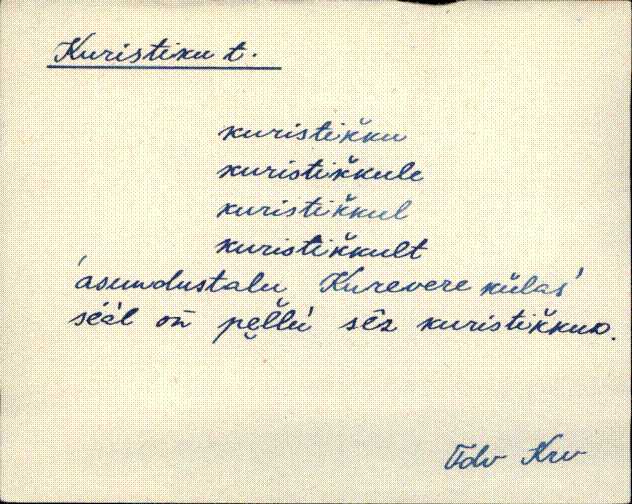 Kuristiku t.
kuristik̆ku
kuristik̆kule
kuristik̆kul
kuristik̆kult
'asundustalu Kurevere külas'
séàl on̄ pel̆lù sȇz kuristik̆kuᴅ.
Vdv Krv